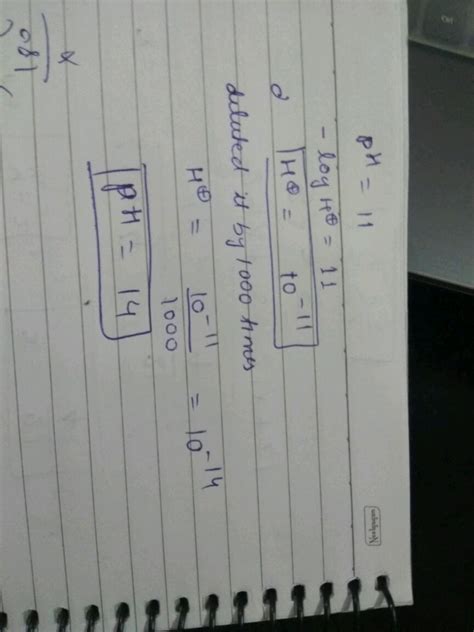 pH = 11
- log H⊕ = 11
H⊕ = 10⁻¹¹
diluted it by 1000 times
H⊕ = 10⁻¹¹/1000 = 10⁻¹⁴
pH = 14
x
180